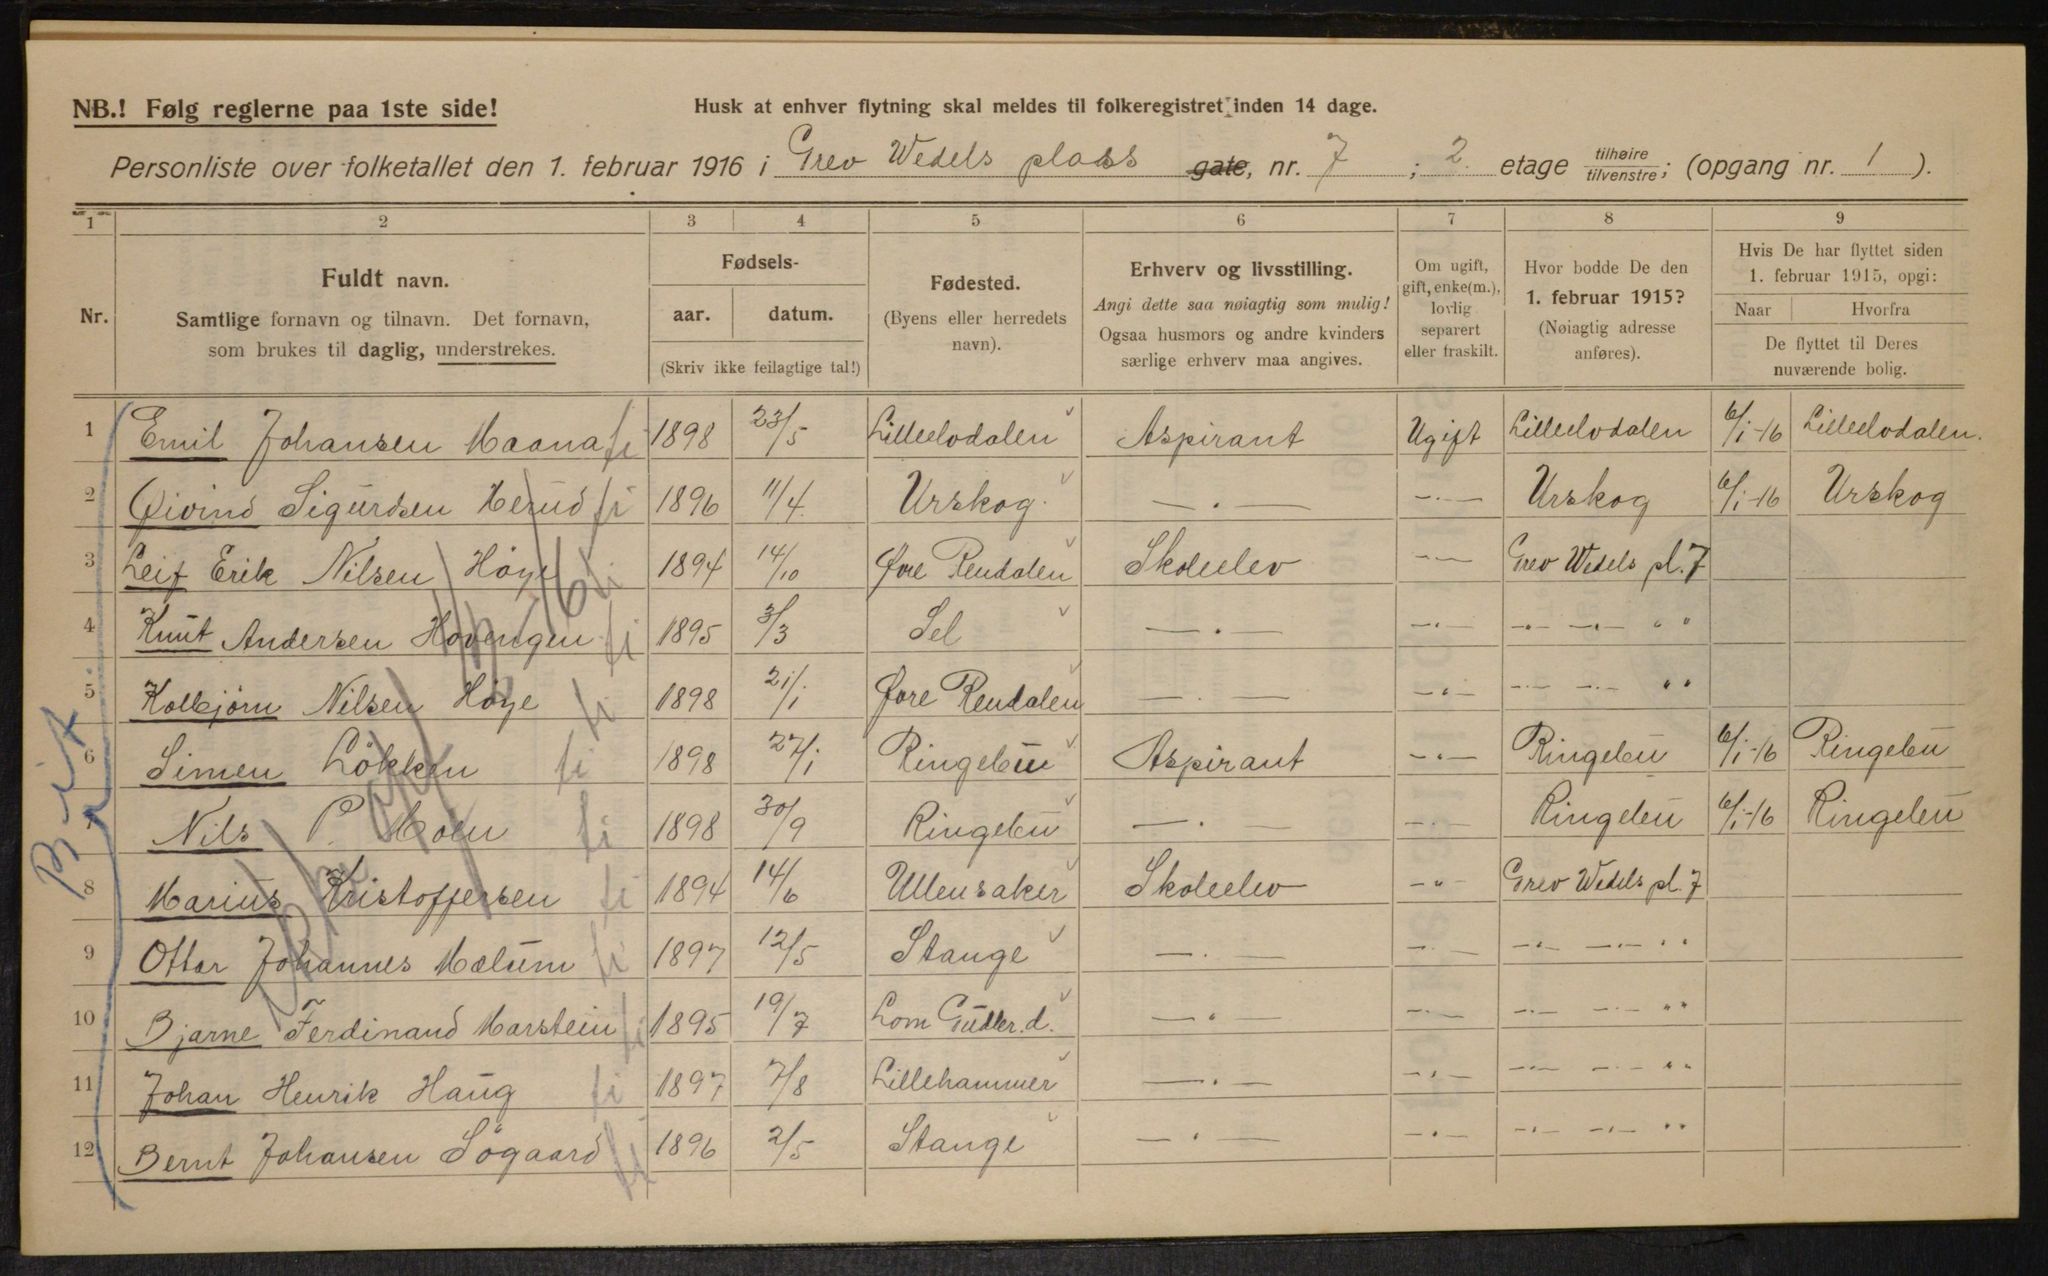 NB.! Følg reglerne paa 1ste side!
Husk at enhver flytning skal meldes til folkeregistret inden 14 dage.
Personliste over folketallet den 1. februar 1916 i Grev Wedels plass gate, nr. 7; 2. etage tilhøire tilvenstre; (opgang nr. 1).
1 2 3 4 5 6 7 8 9
Nr.
Fuldt navn.
Samtlige fornavn og tilnavn. Det fornavn,
som brukes til daglig, understrekes.
Fødsels-
aar. datum.
(Skriv ikke feilagtige tal!)
Fødested.
(Byens eller herredets
navn).
Erhverv og livsstilling.
Angi dette saa nøiagtig som mulig!
Ogsaa husmors og andre kvinders
særlige erhverv maa angives.
Om ugift,
gift, enke(m.),
lovlig
separert
eller fraskilt.
Hvor bodde De den
1. februar 1915?
(Nøiagtig adresse
anføres).
Hvis De har flyttet siden
1. februar 1915, opgi:
Naar Hvorfra
De flyttet til Deres
nuværende bolig.
1 Emil Johansen Maana fi 1898 23/5 Lilleelvdalen Aspirant Ugift Lilleelvdalen 6/1-16 Lilleelvdalen.
2 Øivind Sigurdsen Herud fi 1896 11/4. Urskog. —.— —.— Urskog 6/1-16 Urskog
3 Leif Erik Nilsen Høye fi 1894 14/10 Øvre Rendalen Skoleelev —.— Grev Wedels pl. 7
4 Knut Andersen Hovengen fi 1895 3/3 Sel —.— —.— —.— —.— " "
5 Kolbjørn Nilsen Høye fi 1898 21/1 Øvre Rendalen —.— —.— —.— —.— " "
6 Simen Lökken fi 1898 27/1 Ringebu Aspirant —.— Ringebu 6/1-16 Ringebu
7 Nils P. Moen fi 1898 30/9 Ringebu —.— —.— Ringebu 6/1-16 Ringebu
8 Marius Kristoffersen fi 1894 14/6 Ullensaker Skoleelev —"— Grev Wedels pl. 7
9 Ottar Johannes Mælum fi 1897 12/5 Stange —.— —.— —.— —.— " "
10 Bjarne Ferdinand Marstein fi 1895 19/7 Lom Gudbr.d. —.— —.— —.— —.— " "
11 Johan Henrik Haug fi 1897 7/8 Lillehammer —.— —.— —.— —.— " "
12 Bernt Johansen Sögaard fi 1896 2/5 Stange —.— —.— —.— —.— " "